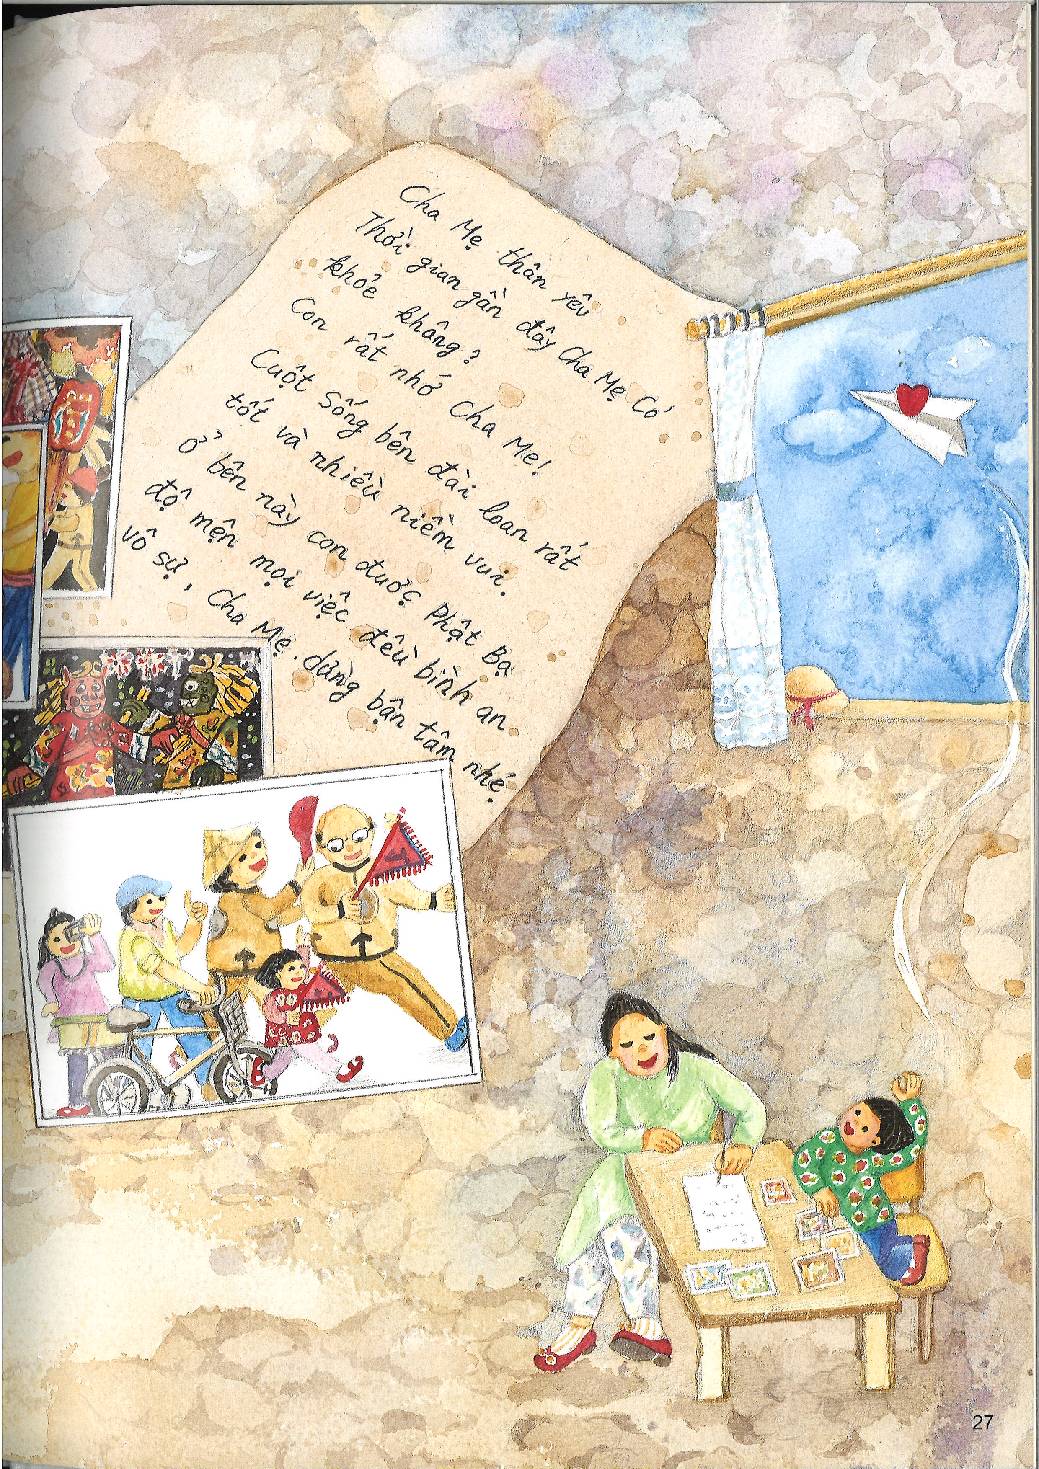 Cha Mẹ thân yêu
Thời gian gần đây Cha Mẹ Có
khỏe không?
Con rất nhớ Cha Mẹ!
Cuột Sống bên đài loan rất
tốt và nhiều niềm vui.
Ở bên này con được Phật Bạ
độ mện mọi việc đều bình an
vô sự, Cha Mẹ. đừng bận tâm nhé.
27